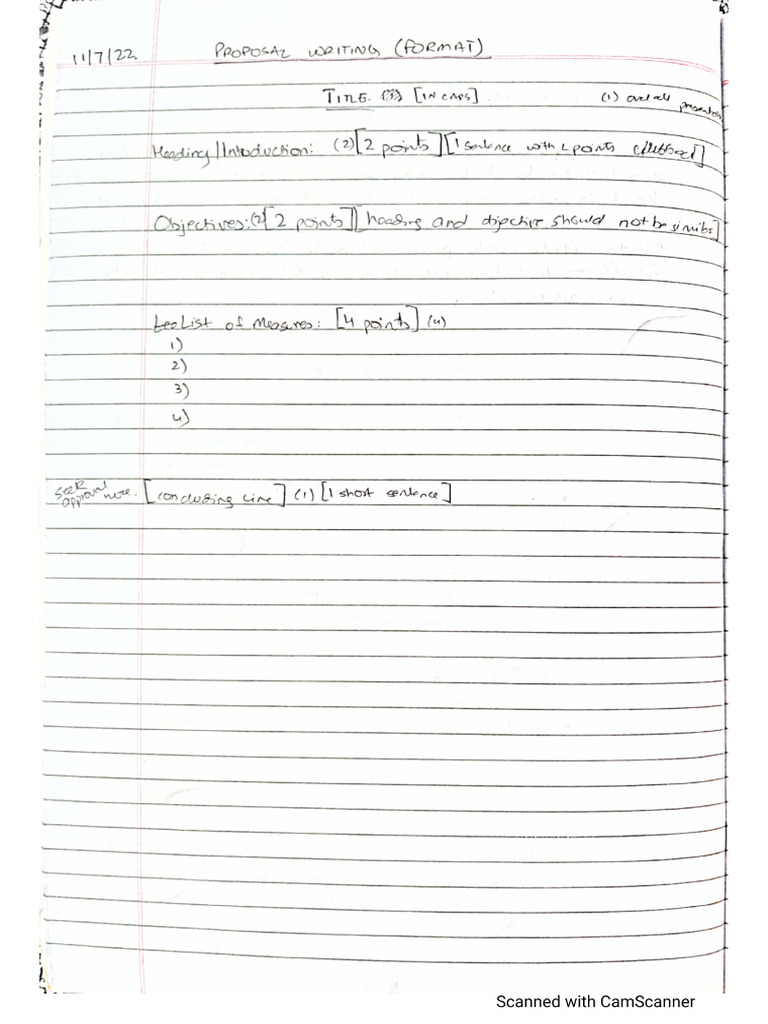 11/7/22 PROPOSAL WRITING (FORMAT)
TITLE. [IN CAPS] (1) overall presentation
Heading/Introduction: (2) [2 points] [1 sentence with 2 points]
Objectives: (2) [2 points] [heading and objective should not be similar]
List of Measures: [4 points] (4)
1)
2)
3)
4)
Seek approval here. [concluding line] (1) [1 short sentence]
Scanned with CamScanner